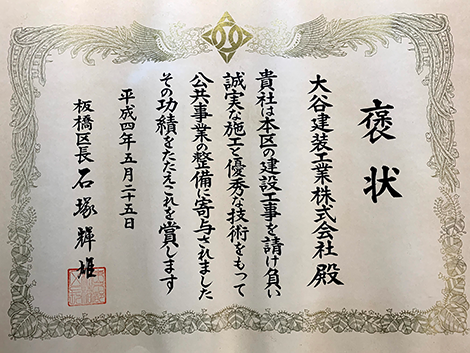 褒状
大谷建装工業株式会社 殿
貴社は本区の建設工事を請け負い
誠実な施工と優秀な技術をもって
公共事業の整備に寄与されました
その功績をたたえこれを賞します
平成四年五月二十五日
板橋区長 石塚輝雄